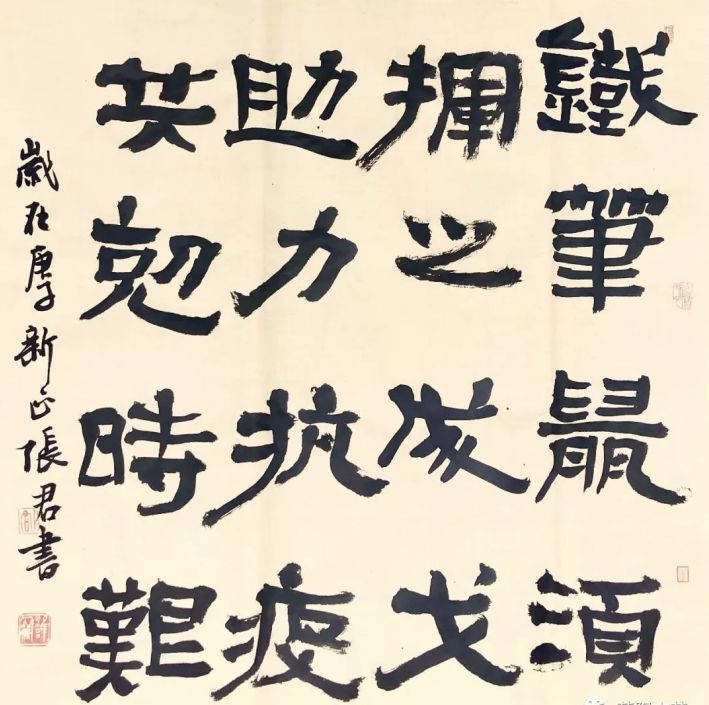 鐵筆鼠須
揮之成戈
助力抗疫
共剋時艱
歲在庚子新正張君書